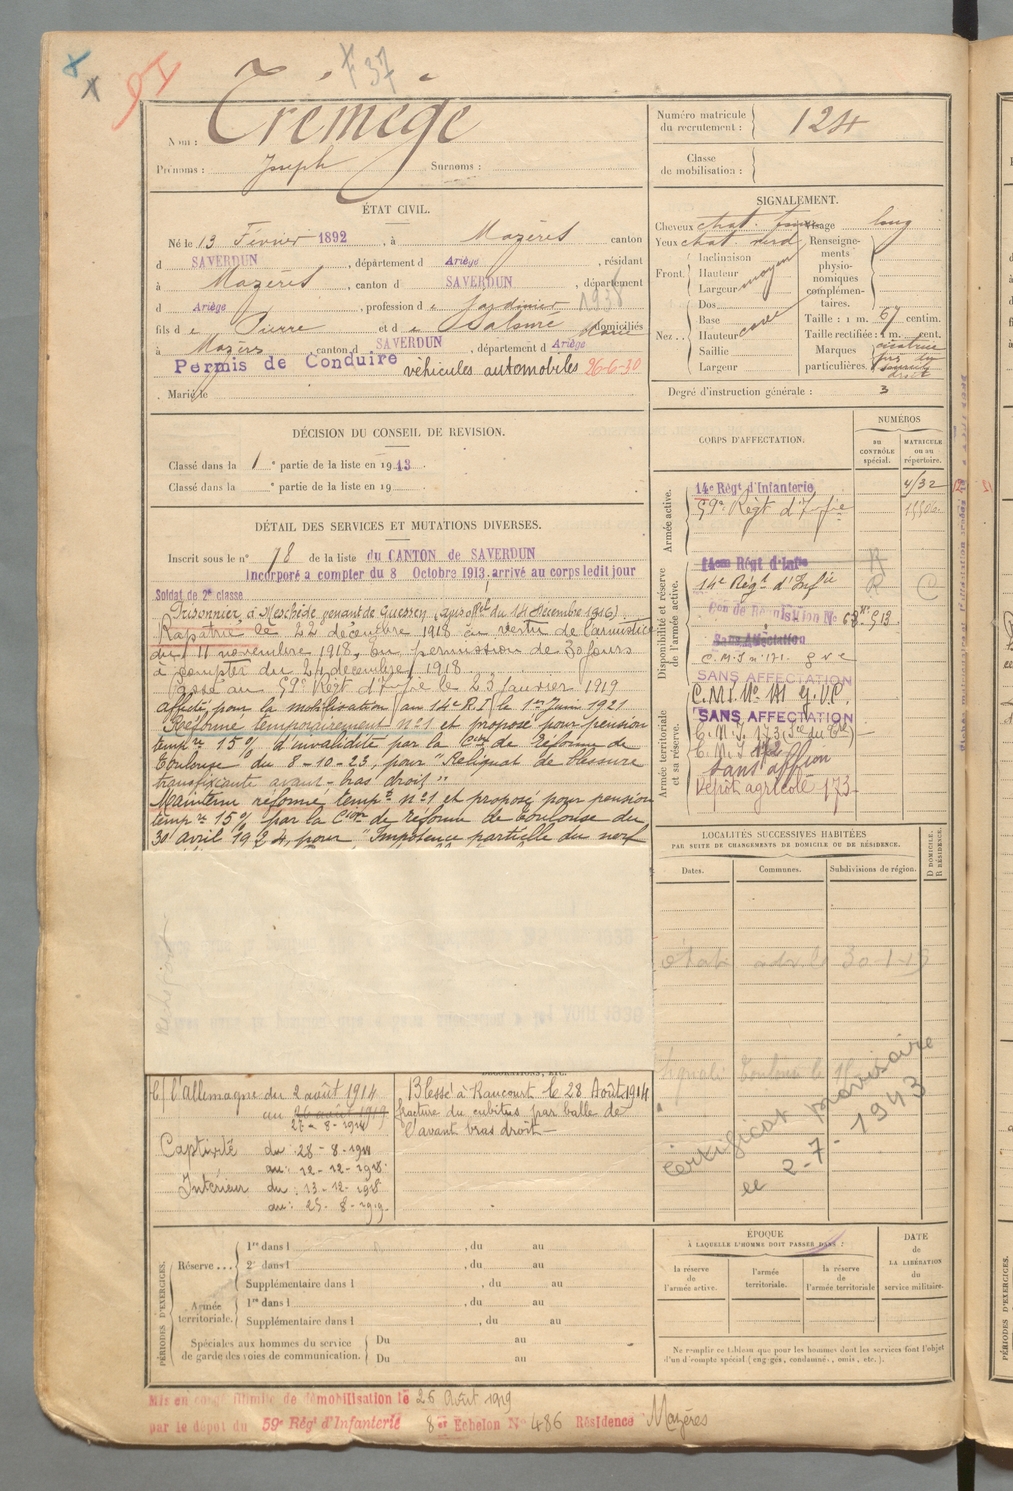 F 37
Nom : Trémège
Prénoms : Joseph Surnoms :
Numéro matricule du recrutement : 124
Classe de mobilisation :
ÉTAT CIVIL.
Né le 13 Février 1892, à Mazères canton
d SAVERDUN, département d Ariège, résidant
à Mazères, canton d SAVERDUN, département
d Ariège, profession de Jardinier 1938
fils de Pierre et de Salomé domiciliés
à Mazères, canton d SAVERDUN, département d Ariège
Permis de Conduire véhicules automobiles 26-6-30
Marié le
SIGNALEMENT.
Cheveux chat. Visage long
Yeux chat. verd
Renseignements physionomiques complémentaires.
Front. Inclinaison
Hauteur moyen
Largeur
Nez.. Dos
Base
Hauteur cave
Saillie
Largeur
Taille : 1 m. 67 centim.
Taille rectifiée : 1 m. cent.
Marques particulières. cicatrice sourcil droit
Degré d'instruction générale : 3
DÉCISION DU CONSEIL DE REVISION.
Classé dans la 1e partie de la liste en 1913.
Classé dans la e partie de la liste en 19
DÉTAIL DES SERVICES ET MUTATIONS DIVERSES.
Inscrit sous le n° 78 de la liste du CANTON de SAVERDUN
Incorporé a compter du 8 Octobre 1913, arrivé au corps ledit jour
Soldat de 2e classe
Prisonnier à Meschede venant de Giessen (avis off.el du 14 décembre 1916)
Rapatrié le 22 décembre 1918 en vertu de l'armistice
du 11 novembre 1918, en permission de 30 jours
à compter du 24 décembre 1918.
Passé au 59e Régt d'Infie le 23 Janvier 1919
affecté pour la mobilisation au 14e R.I le 1er Juin 1921
Réformé temporairement n°1 et proposé pour pension
tempre 15% d'invalidité par la Cion de Réforme de
Toulouse du 8-10-23, pour "Reliquat de blessure
transfixiante avant-bras droit"
Maintenu réformé tempre n°1 et proposé pour pension
tempre 15% par la Cion de réforme de Toulouse du
30 avril 1924, pour "Impotence partielle du nerf
CORPS D'AFFECTATION.
NUMÉROS
au CONTRÔLE spécial.
MATRICULE ou au répertoire.
Armée active.
14e Régt d'Infanterie 4/32
59e Régt d'Infie
Disponibilité et réserve de l'armée active.
14em Régt d'Infie R
14e Régt d'Infie R C
Sans Affectation
SANS AFFECTATION
Armée territoriale et sa réserve.
SANS AFFECTATION
Dépôt agricole 173
LOCALITÉS SUCCESSIVES HABITÉES
PAR SUITE DE CHANGEMENTS DE DOMICILE OU DE RÉSIDENCE.
Dates. Communes. Subdivisions de région.
D DOMICILE. R RÉSIDENCE.
Certificat provisoire
le 2-7-1943
l'Allemagne du 2 août 1914
au 26 août 1919
27-8-1914
Captivité du 28-8-1914
au: 12-12-1918
Intérieur du: 13-12-1918
au: 25-8-1919.
Blessé à Raucourt le 28 Août 1914
fracture du cubitus par balle de
l'avant bras droit
PÉRIODES D'EXERCICES.
Réserve ... 1re dans l , du au
2e dans l , du au
Supplémentaire dans l , du au
Armée territoriale. 1re dans l , du au
Supplémentaire dans l , du au
Spéciales aux hommes du service de garde des voies de communication. Du au
Du au
ÉPOQUE
À LAQUELLE L'HOMME DOIT PASSER DANS :
la réserve de l'armée active.
l'armée territoriale.
la réserve de l'armée territoriale
DATE de LA LIBÉRATION du service militaire.
Ne remplir ce tableau que pour les hommes dont les services font l'objet
d'un décompte spécial (engagés, condamnés, omis, etc.).
Mis en congé illimité de démobilisation le 26 Août 1919
par le dépôt du 59e Régt d'Infanterie 8e Echelon N° 486 Résidence Mazères